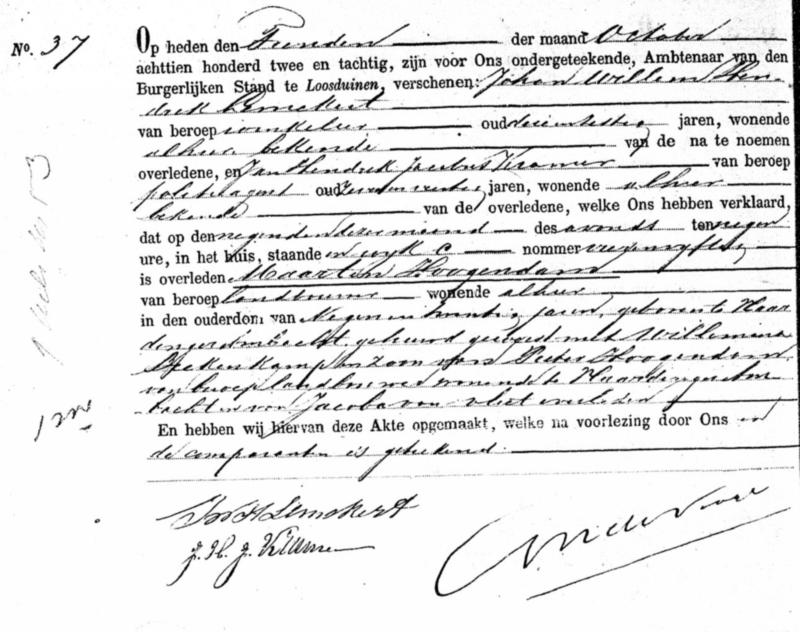 No. 37
Op heden den Tienden der maand October
achttien honderd twee en tachtig, zijn voor Ons ondergeteekende, Ambtenaar van den
Burgerlijken Stand te Loosduinen, verschenen: Johan Willem Hen-
drik Lemckert
van beroep winkelier oud jaren, wonende
alhier bekende van de na te noemen
overledene, en Jan Hendrik Jacobus Kramer van beroep
politieagent oud jaren, wonende alhier
bekende van de overledene, welke Ons hebben verklaard,
dat op den negenden dezer maand des avonds ten negen
ure, in het huis, staande in wijk C nommer
is overleden Maarten Hoogendam
van beroep landbouwer wonende alhier
in den ouderdom van Negen en twintig jaren, geboren te Haar
dingerambacht, gehuwd geweest met Willemina
zoon van Pieter Hoogendam
van beroep landbouwer wonende te
bacht en van Jacoba van Vliet overleden
En hebben wij hiervan deze Akte opgemaakt, welke na voorlezing door Ons en
de comparanten is geteekend.
JWH Lemckert
J. H. J. Kramer